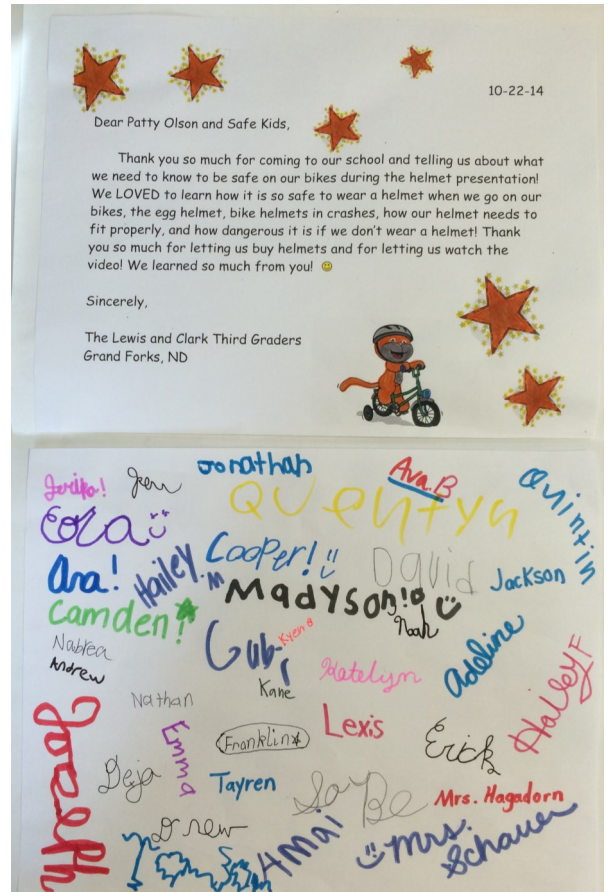 10-22-14
Dear Patty Olson and Safe Kids,
Thank you so much for coming to our school and telling us about what
we need to know to be safe on our bikes during the helmet presentation!
We LOVED to learn how it is so safe to wear a helmet when we go on our
bikes, the egg helmet, bike helmets in crashes, how our helmet needs to
fit properly, and how dangerous it is if we don't wear a helmet! Thank
you so much for letting us buy helmets and for letting us watch the
video! We learned so much from you!
Sincerely,
The Lewis and Clark Third Graders
Grand Forks, ND
Jonathan
Ava.B
Quintin
Quentyn
Cooper!
David
Jackson
Ava!
Hailey.M
Madyson!
Noah
Camden!
Kyenna
Adeline
Andrew
Katelyn
Kane
Hailey F
Nathan
Emma
Lexis
Franklin
Erick
Joseph
Deja
Tayren
Mrs. Hagadorn
Drew
Amai
Mrs.
Schauer